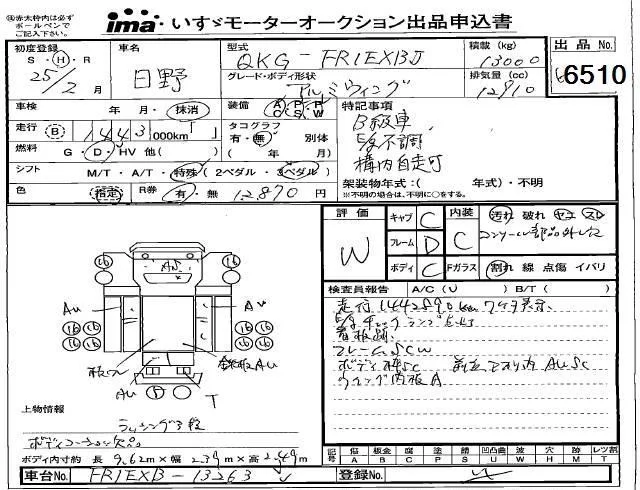 ※赤太枠内は必ず
ボールペンで
ご記入下さい。
ima いすゞモーターオークション出品申込書
初度登録 車名 型式 積載(kg) 出品No.
S・H・R 25/2月 日野 QKG-FR1EXBJ 13000
グレード・ボディ形状 排気量(cc)
アルミウィング 12910
6510
車検 年 月・抹消 装備 A C P S P W 特記事項
B級車
走行 B 1443 000km タコグラフ 有・無 別体
E/g不調
燃料 G・D・HV 他( ) ( 年 月)
構内自走可
シフト M/T・A/T・特殊(2ペダル・3ペダル) 架装物年式:( 年式)・不明
色 指定 R券 有・無 12870円 ※不明の場合は、不明に○をする。
評価 W キャブ C 内装 C 汚れ 破れ ヤエ スレ
コンソール部品外レ
フレーム D
ボディ C Fガラス 割れ 線 点傷 イバリ
検査員報告 A/C(U ) B/T( )
走行1442890km
E/gチェックランプ点灯
看板跡
フレームSCW
ボディ枠SC アオリ内AUSC
ウィング内板A
AS
16 16 16 16
AU AU
16 16 16 16
16 16 16 16
AU T
上物情報
ラッシング3段
ボディ内寸約 長9.62m×幅2.39m×高
記号 傷 A 板金 B 腐 C 塗 P サビ S 凹凸曲 U 波 W 穴 H 跡 M レツ割 T
車台No. FR1EXB-13263 登録No.